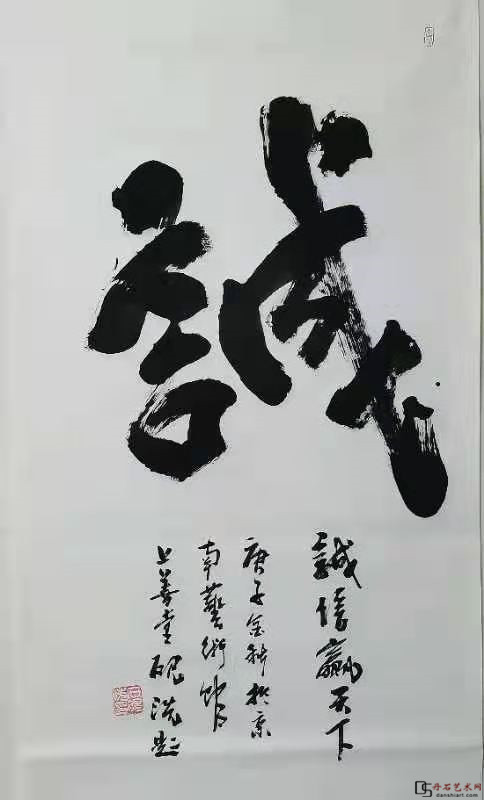 誠
誠信贏天下
庚子金秋於京
南藝術
上善堂硯題
丹石艺术网
danshiart.com